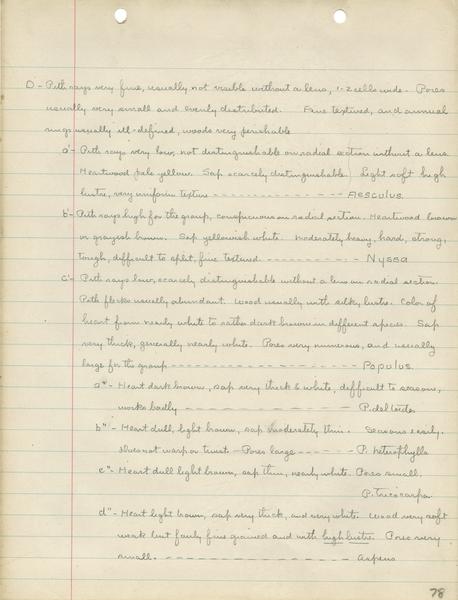 D - Pith rays very fine, usually not visible without a lens, 1-2 cells wide. Pores
usually very small and evenly distributed. Fine textured, and annual
rings usually ill-defined, woods very perishable
a' - Pith rays very low, not distinguishable on radial section without a lens
Heartwood pale yellow. Sap scarcely distinguishable. Light soft high
lustre, very uniform texture - - - - - - - - - - - - - - - Aesculus.
b' - Pith rays high for the group, conspicuous on radial section. Heartwood brown
or grayish brown. Sap yellowish white. Moderately heavy, hard, strong,
tough, difficult to split, fine textured - - - - - - - - - - - Nyssa
c' - Pith rays low, scarcely distinguishable without a lens on radial section.
Pith flecks usually abundant. Wood usually with silky lustre. Color of
heart from nearly white to rather dark brown in different species. Sap
very thick, generally nearly white. Pores very numerous, and usually
large for the group - - - - - - - - - - - - - - - - Populus.
a" - Heart dark brown, sap very thick & white, difficult to season,
works badly - - - - - - - - - - - - - P. deltoides
b" - Heart dull, light brown, sap moderately thin. Seasons easily.
Does not warp or twist - Pores large - - - - - - P. heterophylla
c" - Heart dull light brown, sap thin, nearly white. Pores small.
P. tricocarpa.
d" - Heart light brown, sap very thick, and very white. Wood very soft
weak but fairly fine grained and with high lustre. Pores very
small. - - - - - - - - - - - - - - - - - - Aspens
78